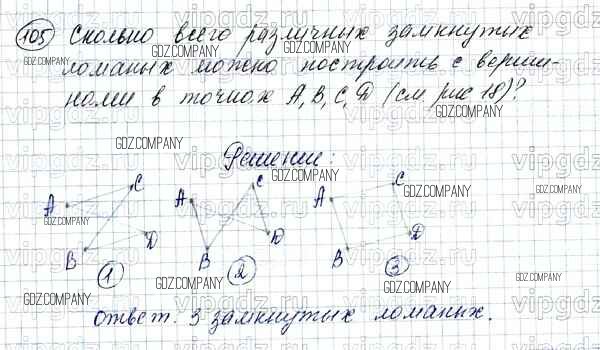 105 Сколько всего различных замкнутых
ломаных можно построить с верши-
нами в точках A, B, C, D (см рис 18)?
Решение:
A C B D 1
A C B D 2
A C B D 3
Ответ. 3 замкнутых ломаных.
GDZ.COMPANY
vipgdz.ru